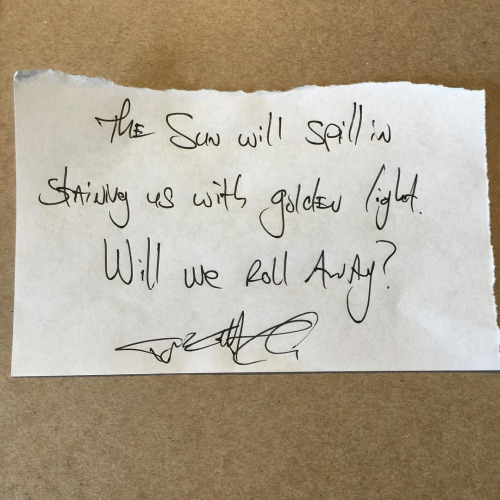 The Sun will spill in
staining us with golden light.
Will we roll away?